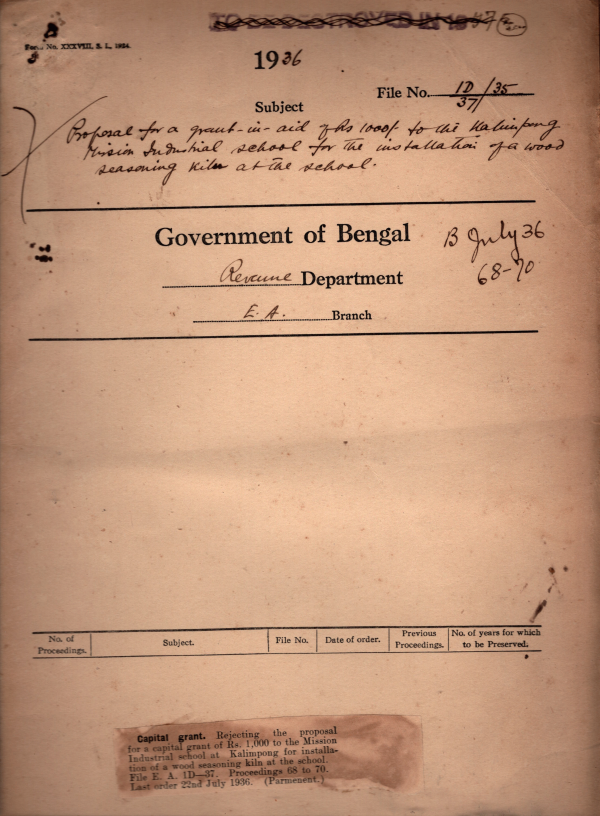 TO BE DESTROYED IN 19
Form No. XXXVIII, S. I., 1934.
1936
File No. 1D/37/35
Subject
Proposal for a grant-in-aid of Rs 1000/- to the Kalimpong
Mission Industrial school for the installation of a wood
seasoning kiln at the school.
Government of Bengal
B July 36
68-70
Revenue Department
E. A. Branch
No. of Proceedings. Subject. File No. Date of order. Previous Proceedings. No. of years for which to be Preserved.
Capital grant. Rejecting the proposal
for a capital grant of Rs. 1,000 to the Mission
Industrial school at Kalimpong for installa-
tion of a wood seasoning kiln at the school.
File E. A. 1D—37. Proceedings 68 to 70.
Last order 22nd July 1936. (Parmenent.)